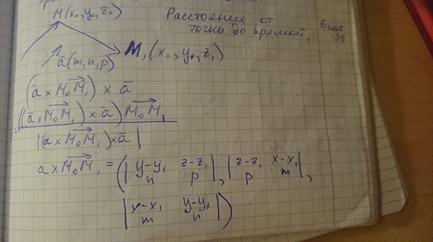 M(x₀,y₀,z₀)
Расстояние от
точки до прямой.
Билет
35
ā(m,n,p)
M₁(x₁,y₁,z₁)
(ā×M₀M₁)×ā
((ā×M₀M₁)×ā)M₀M₁
|(a×M₀M₁)×ā|
a×M₀M₁=(|y-y₁ z-z₁|,|z-z₁ x-x₁|,
n p p m
|x-x₁ y-y₁|)
m n